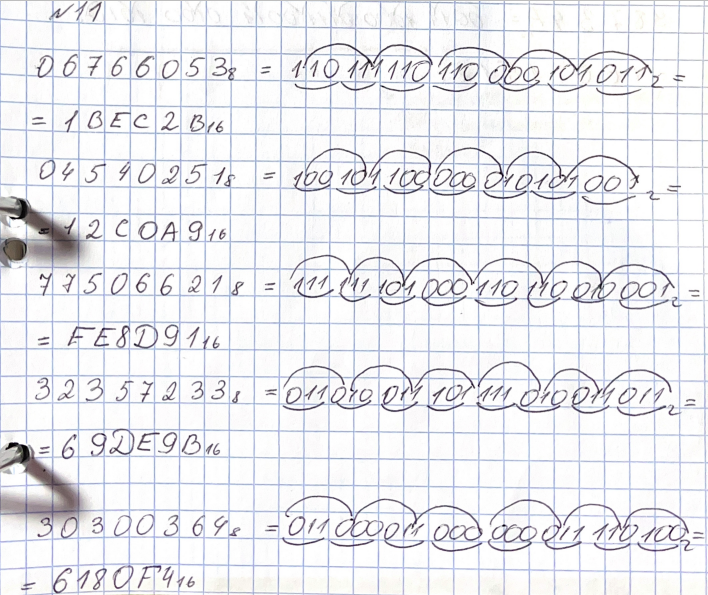 №11
06766053₈ = 110 111 110 110 000 101 011₂ =
= 1BEC2B₁₆
04540251₈ = 100 101 100 000 010 101 001₂ =
= 12C0A9₁₆
77506621₈ = 111 111 101 000 110 110 010 001₂ =
= FE8D91₁₆
32357233₈ = 011 010 011 101 111 010 011 011₂ =
= 69DE9B₁₆
30300364₈ = 011 000 011 000 000 011 110 100₂ =
= 6180F4₁₆